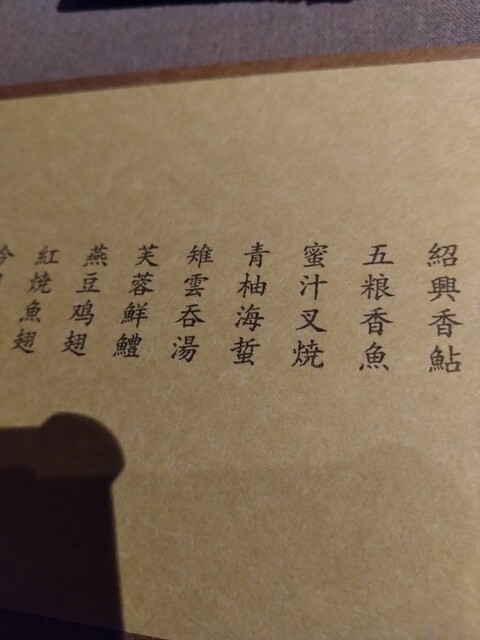 紹興香鮎
五粮香魚
蜜汁叉燒
青柚海蜇
雉雲吞湯
芙蓉鮮鱧
燕豆鸡翅
紅燒魚翅